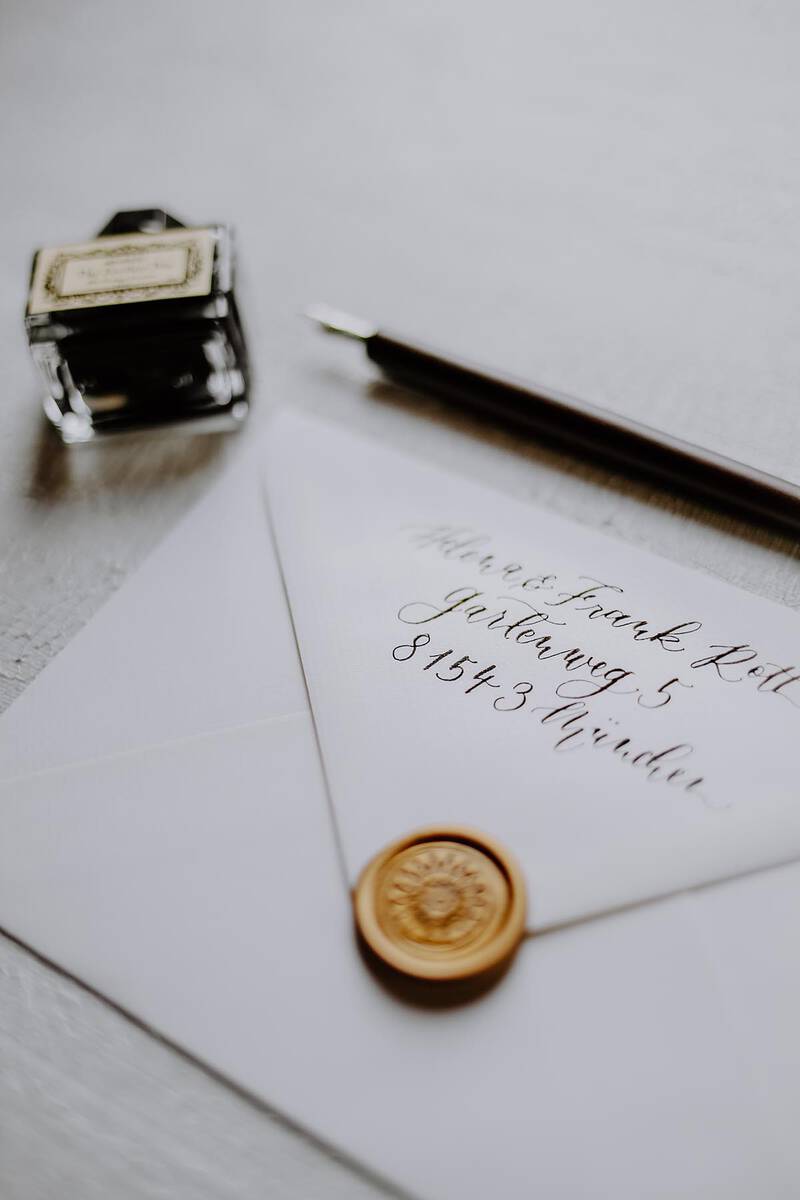 Helena & Frank Rott
Gartenweg 5
81543 München